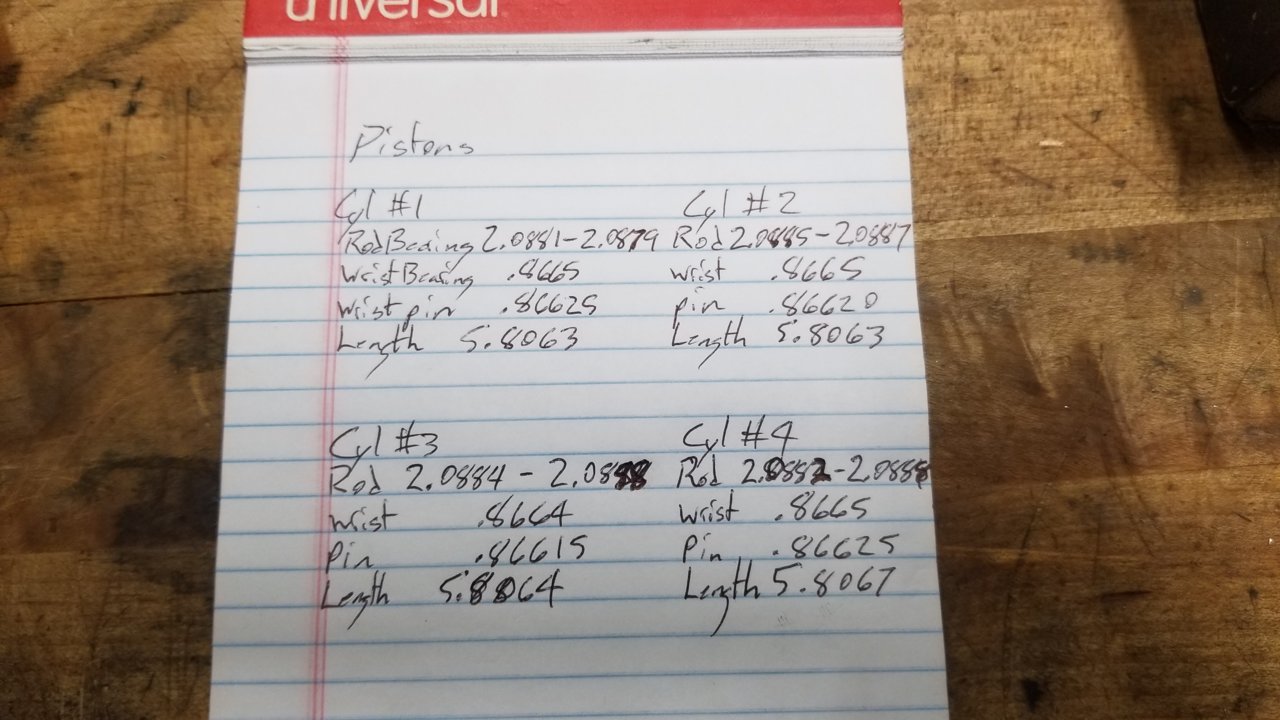 universal
Pistons
Cyl #1
Rod Bearing 2.0881-2.0879
Wrist Bearing .8665
Wrist pin .86625
Length 5.8063
Cyl #2
Rod 2.0885-2.0887
Wrist .8665
pin .86620
Length 5.8063
Cyl #3
Rod 2.0884 - 2.0888
Wrist .8664
Pin .86615
Length 5.8064
Cyl #4
Rod 2.0882-2.0888
Wrist .8665
Pin .86625
Length 5.8067